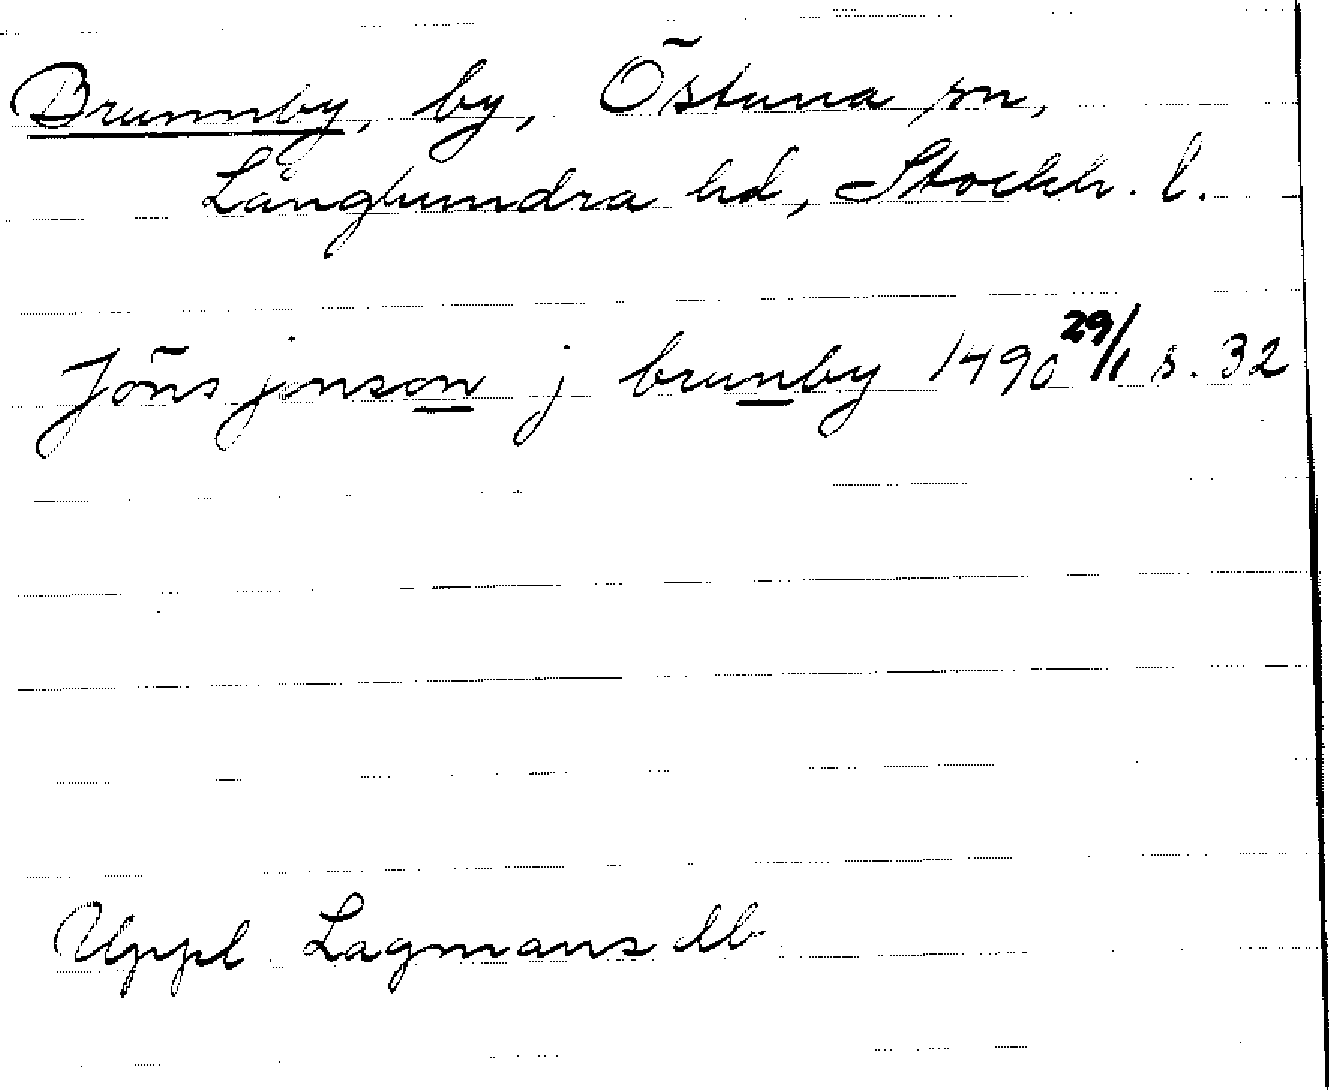 Brunnby, by, Östuna sn,
Långhundra hd, Stockh. l.
Jöns jonson j brunby 1490 29/1 s. 32
Uppl Lagmans db